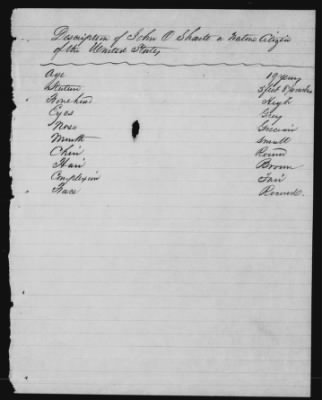 Description of John O Shasto a Native Citizen
of the United States
Age 19 years
Stature 5 feet 8 inches
Forehead High
Eyes Grey
Nose Grecian
Mouth Small
Chin Round
Hair Brown
Complexion Fair
Face Round.